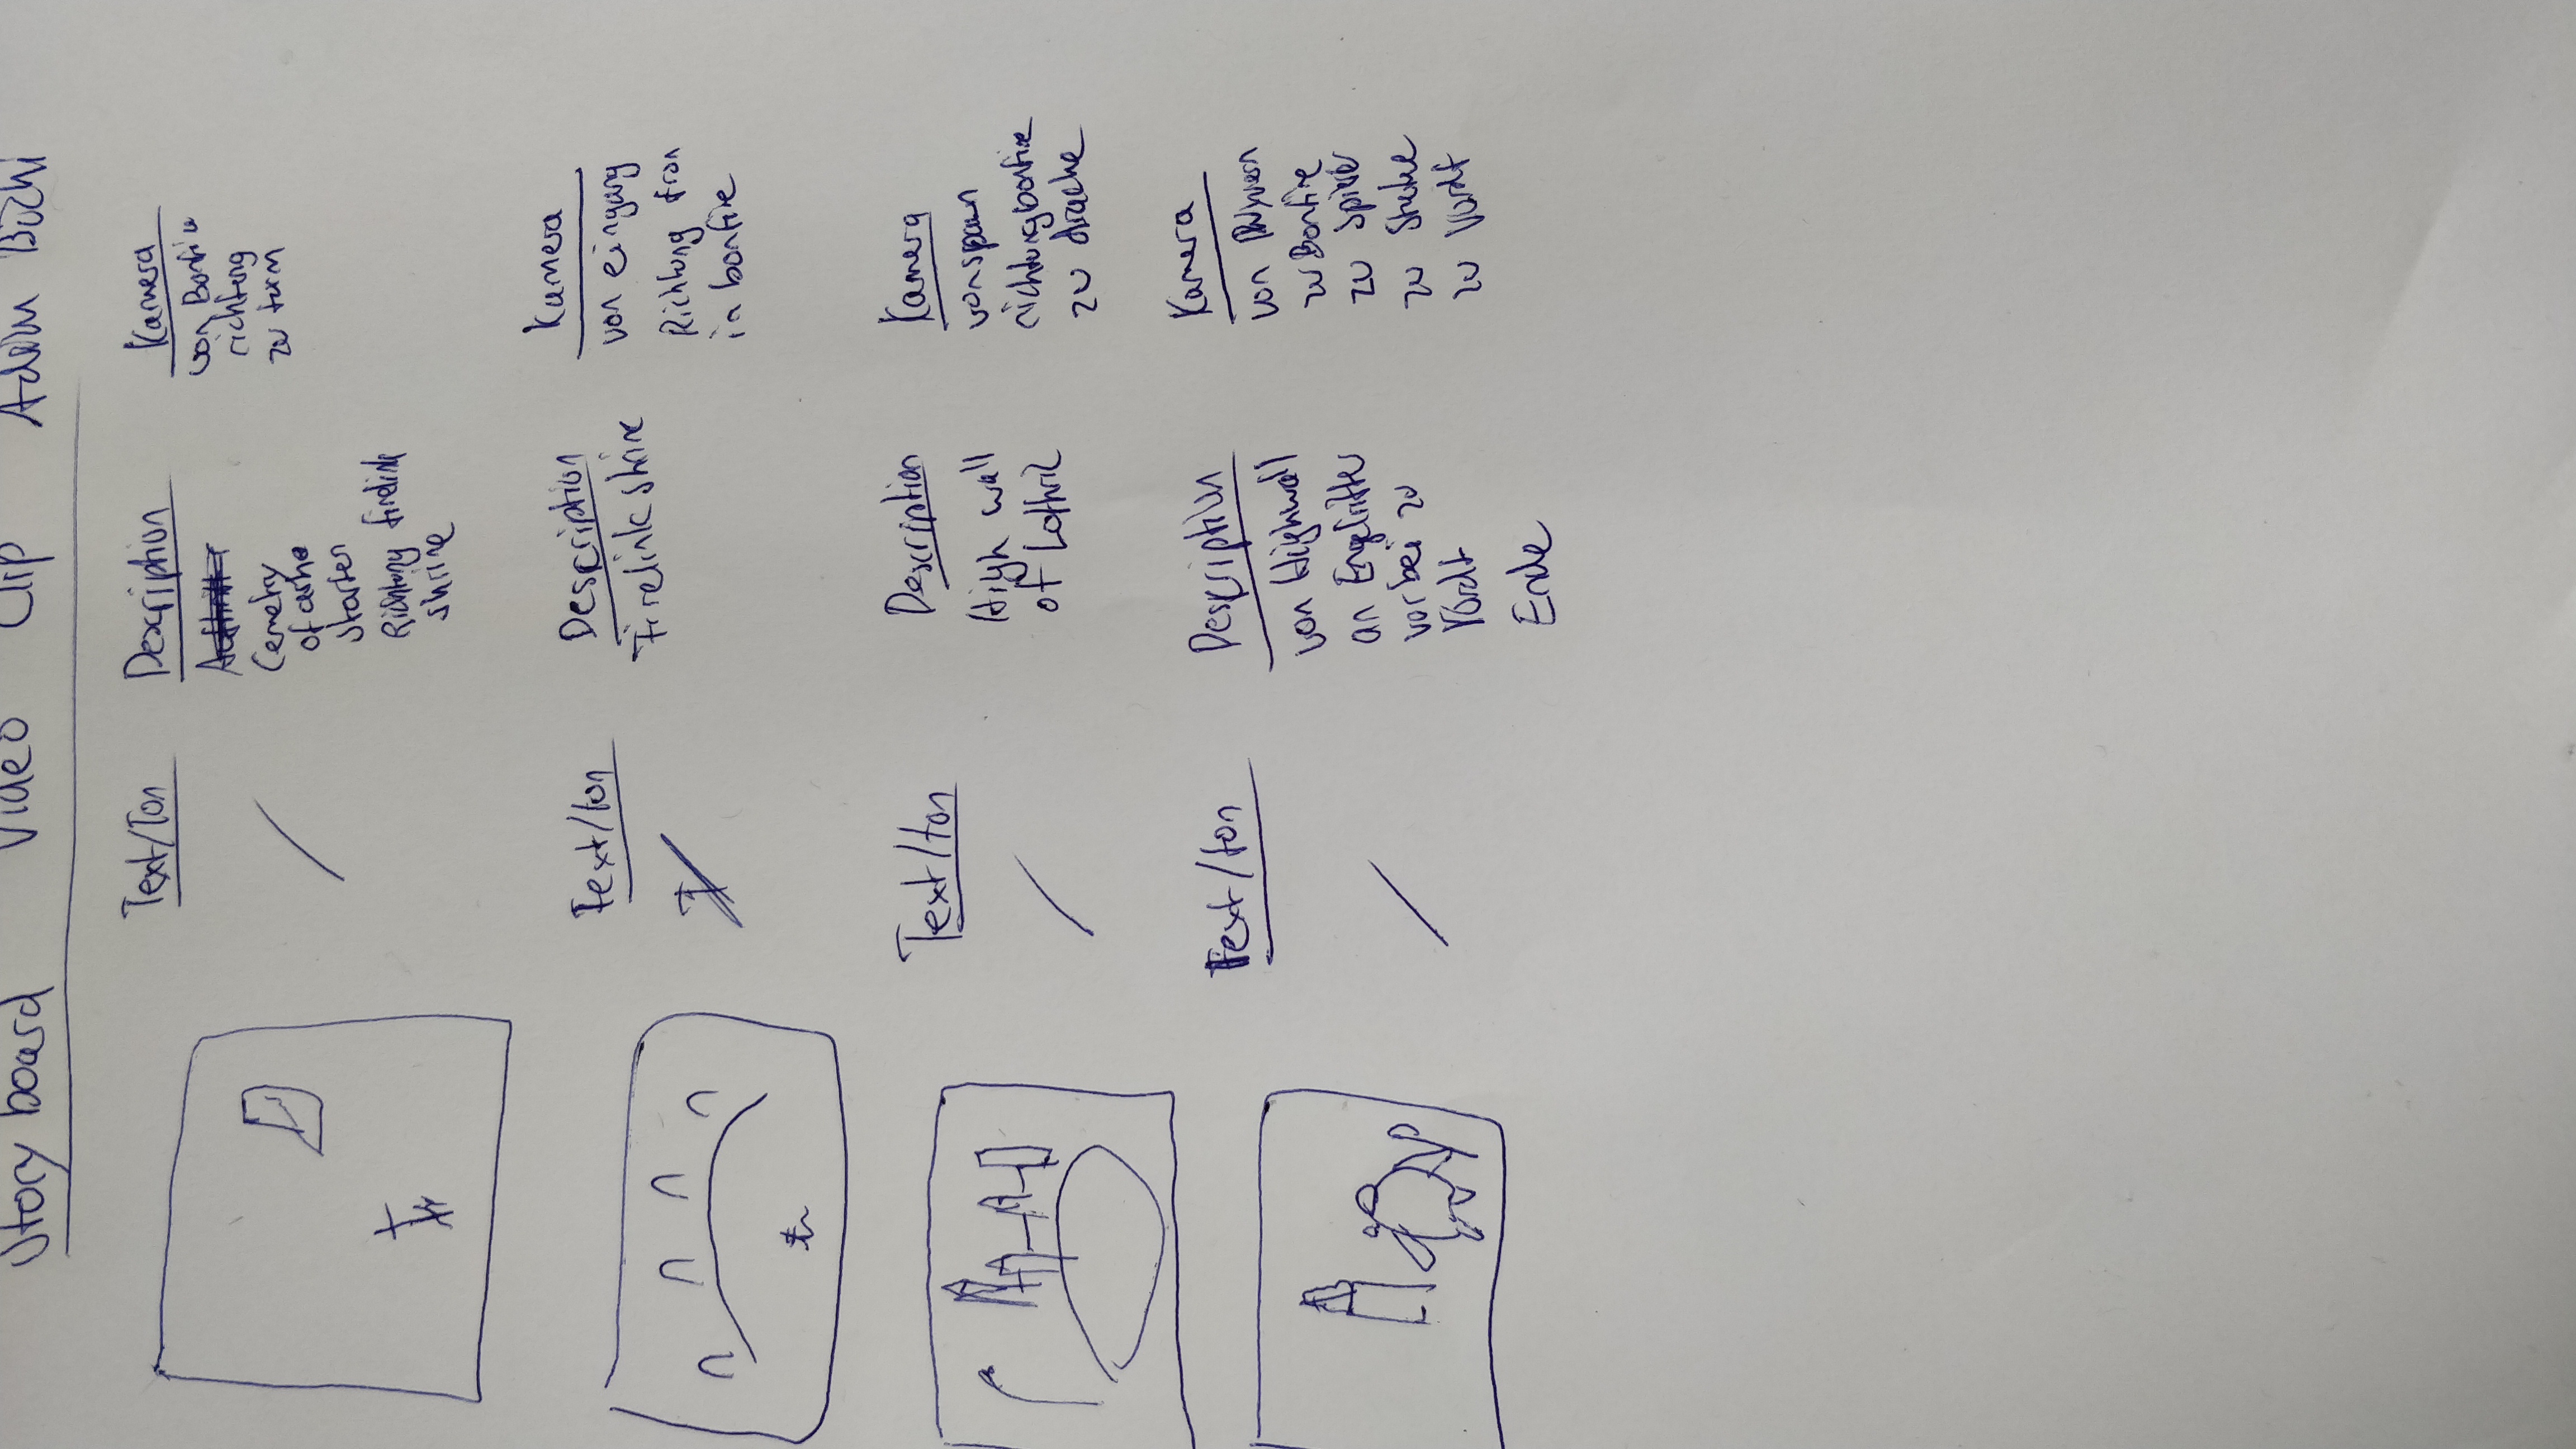 Story board Video Clip
Text/Ton Description Kamera
Cemetry
of ashe
starten
Richtung firelink
shrine
von Bonfire
richtung
zu turm
Text/ton Description Kamera
Firelink shrine
von eingang
Richtung tron
in bonfire
Text/ton Description Kamera
High wall
of Lothric
von spawn
richtung bonfire
zu drache
Text/ton Description Kamera
von Highwall
an Engelritter
vorbei zu
Vordt
Ende
von
zu Bonfire
zu Spieler
zu Statue
zu Vordt